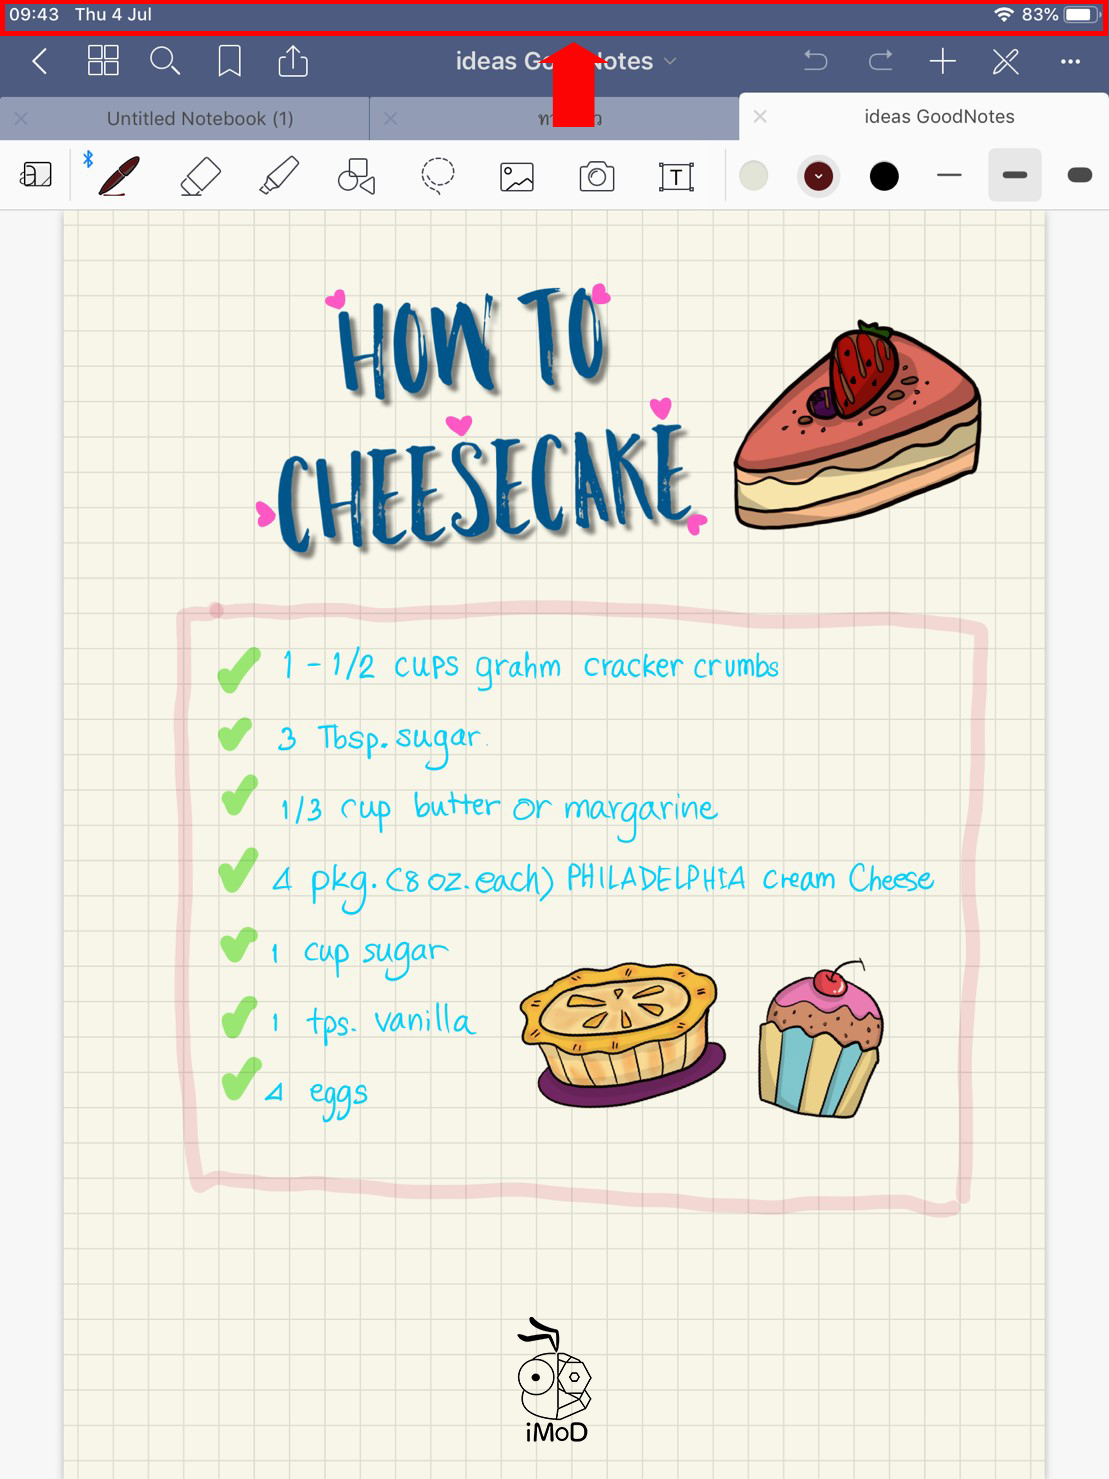 09:43 Thu 4 Jul 83%
ideas GoodNotes
Untitled Notebook (1)
ideas GoodNotes
T
HOW TO
CHEESECAKE
1 - 1/2 cups grahm cracker crumbs
3 Tbsp. sugar
1/3 cup butter or margarine
4 pkg. (8 oz. each) PHILADELPHIA Cream Cheese
1 cup sugar
1 tps. vanilla
4 eggs
iMoD